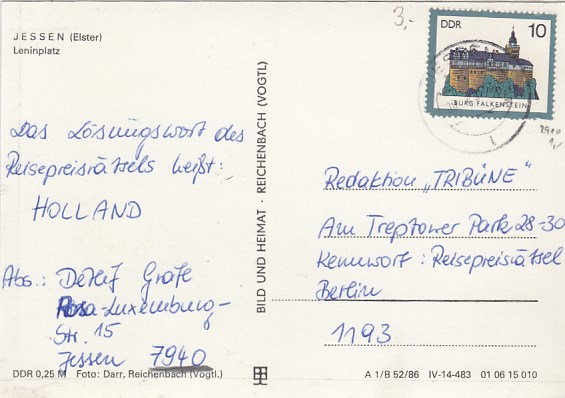 JESSEN (Elster)
Leninplatz
3,-
DDR 10
BURG FALKENSTEIN
2910
1,-
Das Lösungswort des
Reisepreisrätsels heißt:
HOLLAND
Abs.: Detlef Grafe
Rosa-Luxemburg-
Str. 15
Jessen 7940
BILD UND HEIMAT · REICHENBACH (VOGTL)
Redaktion „TRIBÜNE"
Am Treptower Park 28-30
Kennwort: Reisepreisrätsel
Berlin
1193
DDR 0,25 M Foto: Darr, Reichenbach (Vogtl.)
A 1/B 52/86 IV-14-483 01 06 15 010